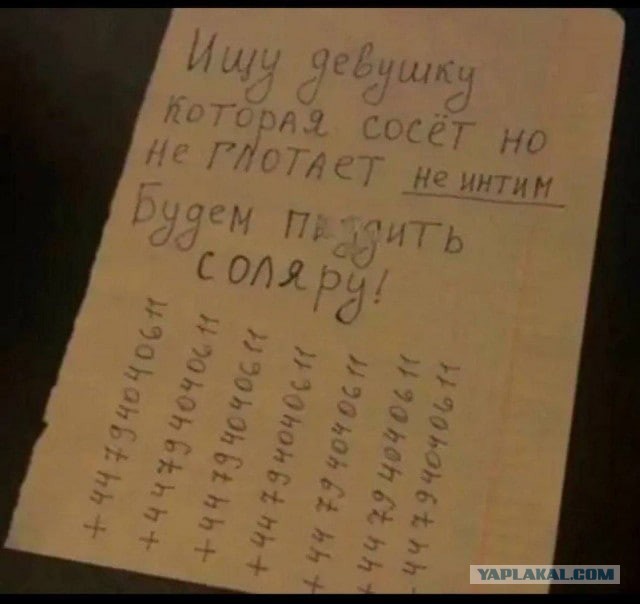 Ищу девушку
которая сосёт но
не глотает не интим
Будем
соляру!
+44794040611
+44794040611
+44794040611
+44794040611
+44794040611
+44794040611
44794040611
YAPLAKAL.COM